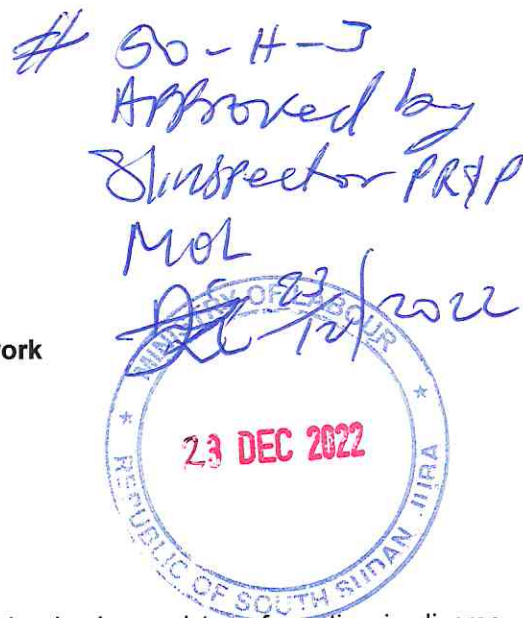 # GO-H-J
Approved by
S/Inspector PR&P
MOL
23/12/2022
ork
MINISTRY OF LABOUR
23 DEC 2022
REPUBLIC OF SOUTH SUDAN JUBA